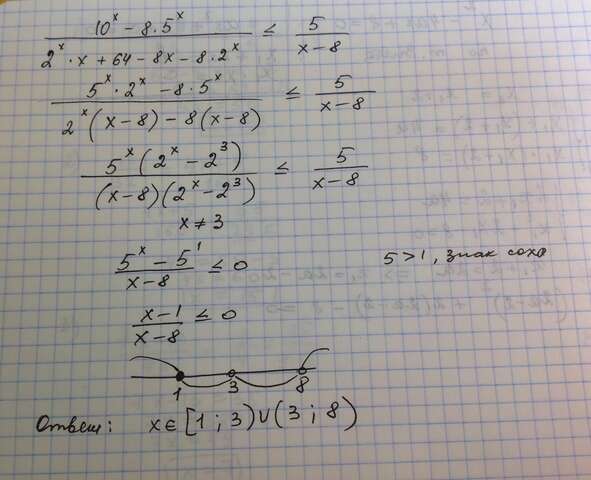 (10^x − 8·5^x)/(2^x·x + 64 − 8x − 8·2^x) ≤ 5/(x−8)
(5^x·2^x − 8·5^x)/(2^x(x−8) − 8(x−8)) ≤ 5/(x−8)
(5^x(2^x − 2^3))/((x−8)(2^x − 2^3)) ≤ 5/(x−8)
x ≠ 3
(5^x − 5^1)/(x−8) ≤ 0 5>1, знак сохр
(x−1)/(x−8) ≤ 0
1 3 8
Ответ: x∈[1;3)∪(3;8)